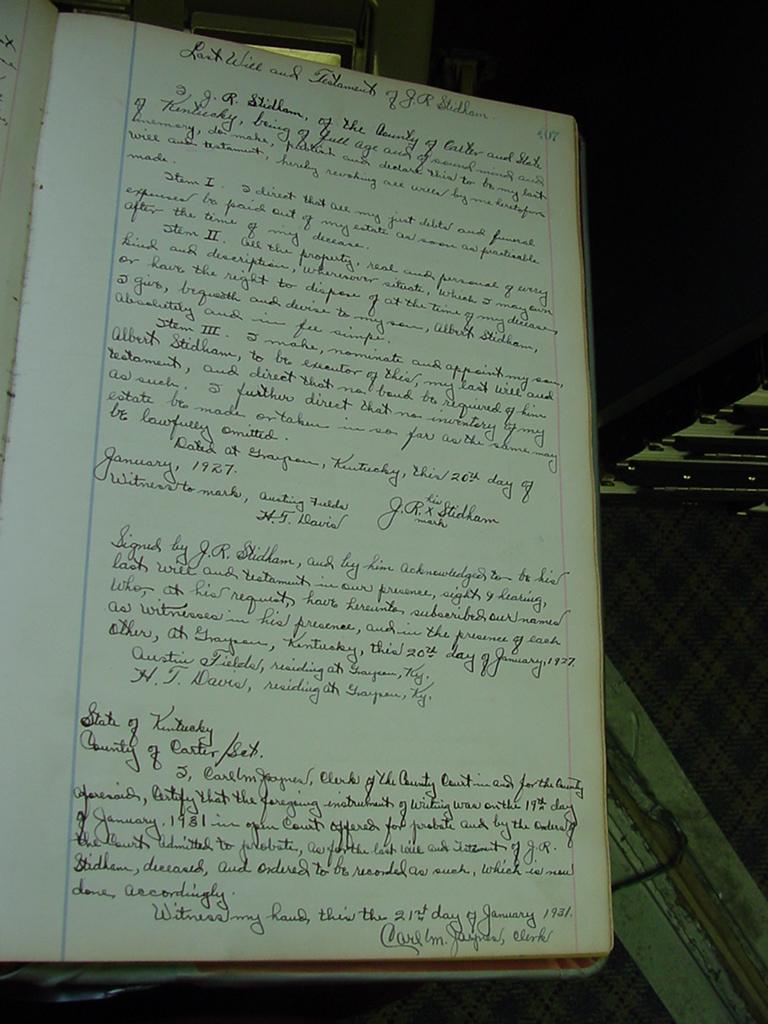 Last Will and Testament of J.R. Stidham.
407
I, J. R. Stidham, of the County of Carter and State
of Kentucky, being of full age and of sound mind and
memory, do make, publish and declare this to be my last
will and testament, hereby revoking all wills by me heretofore
made.
Item I. I direct that all my just debts and funeral
expenses be paid out of my estate as soon as practicable
after the time of my decease.
Item II. All the property, real and personal of every
kind and description, wheresoever situate, which I may own
or have the right to dispose of at the time of my decease,
I give, bequeath and devise to my son, Albert Stidham,
absolutely and in fee simple.
Item III. I make, nominate and appoint my son,
Albert Stidham, to be executor of this, my last will and
testament, and direct that no bond be required of him
as such. I further direct that no inventory of my
estate be made or taken in so far as the same may
be lawfully omitted.
Dated at Grayson, Kentucky, this 20th day of
January, 1927.
his
Witness to mark, Austin Fields J.R. x Stidham
H.T. Davis mark
Signed by J.R. Stidham, and by him acknowledged to be his
last will and testament in our presence, sight & hearing,
who, at his request, have hereunto subscribed our names
as witnesses in his presence, and in the presence of each
other, at Grayson, Kentucky, this 20th day of January, 1927.
Austin Fields, residing at Grayson, Ky.
H. T. Davis, residing at Grayson, Ky.
State of Kentucky
County of Carter / Sct.
I, Carl M. Jaynes, Clerk of the County Court in and for the County
aforesaid, Certify that the foregoing instrument of writing was on the 19th day
of January, 1931 in open Court offered for probate and by the orders of
the Court admitted to probate, as for the last will and Testament of J.R.
Stidham, deceased, and ordered to be recorded as such, which is now
done accordingly.
Witness my hand, this the 21st day of January 1931.
Carl M. Jaynes, Clerk